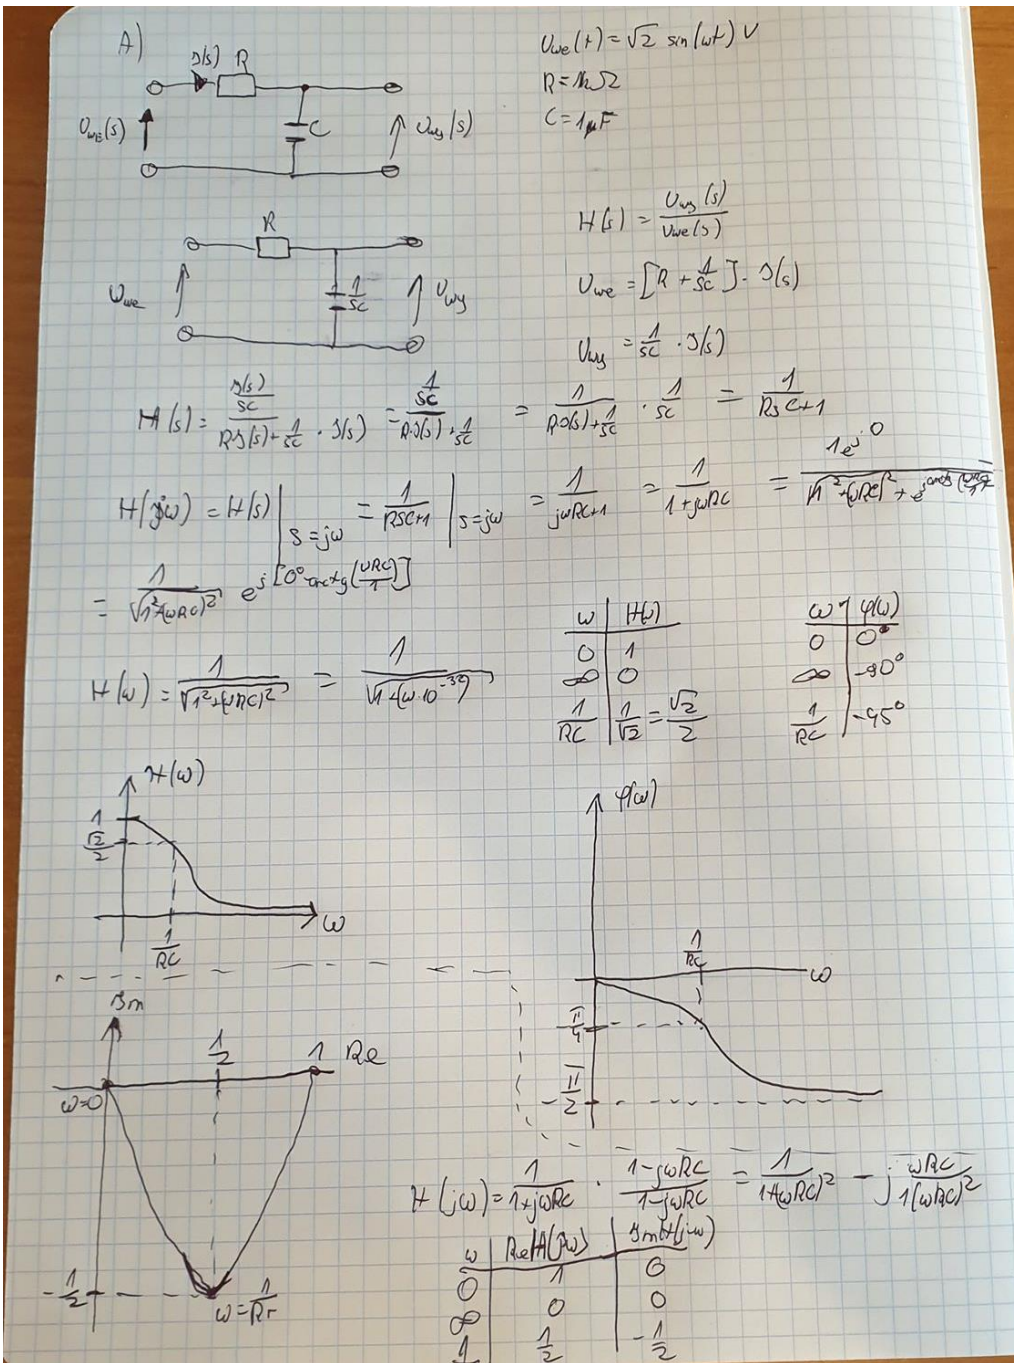 A)
U_we(t) = √2 sin(ωt) V
R = 1kΩ
C = 1μF
I(s) R
U_we(s) C U_wy(s)
H(s) = U_wy(s) / U_we(s)
R
U_we 1/sC U_wy
U_we = [R + 1/sC] · I(s)
U_wy = 1/sC · I(s)
H(s) = (I(s)/sC) / (R I(s) + 1/sC · I(s)) = (1/sC) / (R I(s) + 1/sC) = 1/(R I(s) + 1/sC) · 1/sC = 1/(RsC+1)
H(jω) = H(s) |s=jω = 1/(RsC+1) |s=jω = 1/(jωRC+1) = 1/(1+jωRC) = 1e^j0 / (√(1²+(ωRC)²) + e^j arctg(ωRC/1))
= 1/√(1²+(ωRC)²) e^j[0°-arctg(ωRC/1)]
H(ω) = 1/√(1²+(ωRC)²) = 1/√(1+(ω·10⁻³)²)
ω | H(ω)
0 | 1
∞ | 0
1/RC | 1/√2 = √2/2
ω | φ(ω)
0 | 0°
∞ | -90°
1/RC | -45°
H(ω)
1
√2/2
1/RC
ω
φ(ω)
1/RC
ω
π/4
-π/2
Im
1/2 1 Re
ω=0
-1/2
ω=1/Rc
H(jω) = 1/(1+jωRC) · (1-jωRC)/(1-jωRC) = 1/(1+(ωRC)²) - j ωRC/(1(ωRC)²)
ω | Re H(jω) | Im H(jω)
0 | 1 | 0
∞ | 0 | 0
1 | 1/2 | -1/2